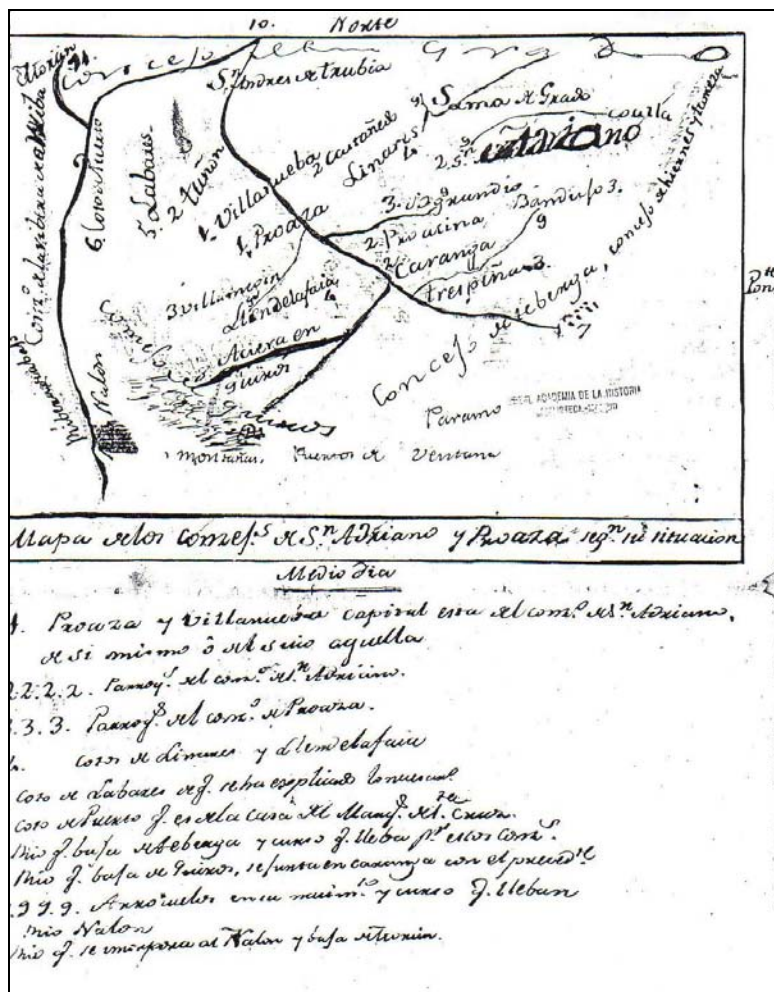 10. Norte
Concejo de Grado
Sn Andres de Trubia
9 Sama de Grado
coalla
2 Sn
2 Castañedo
Linares 4
1. Villanueba
2 Tuñon
5. Labares
6. Coto de Puerto
1. Proaza
3. Sogrundio
2. Proacina
Bandujo 3.
9
2 Caranga
Trespiña 3.
3 Villamejin
Llendelafaia
4
Concejo de Quiros
Rivera en
Quiros
Nalon
Concejo de Teberga,
7
8
Paramo
REAL ACADEMIA DE LA HISTORIA
Montañas, Puertos de Ventana
Mapa de los conzejs de Sn Adriano y Proaza segn su situacion
Medio dia
1. Proaza y Villanueba capital esta del conzo de Sn Adriano,
de si mismo ô del suio aquella
2.2.2.2. Parroqs del conzo de Sn Adriano.
3.3.3. Parroqs del conzo de Proaza.
4. Cotos de Linares y Llendelafaia
Coto de Labares de q. se ha explicado
Coto de Puerto q. es de la Casa del Marqs de Sta Cruz.
Rio q. baja de Teberga y curso q. lleba pr estos conzs
Rio q. baja de Quiros, se junta en caranga con el precedte
.9 9.9. Arroiuelos en su nacimto y curso q. lleban
Rio Nalon
Rio q. se incorpora al Nalon y baja de